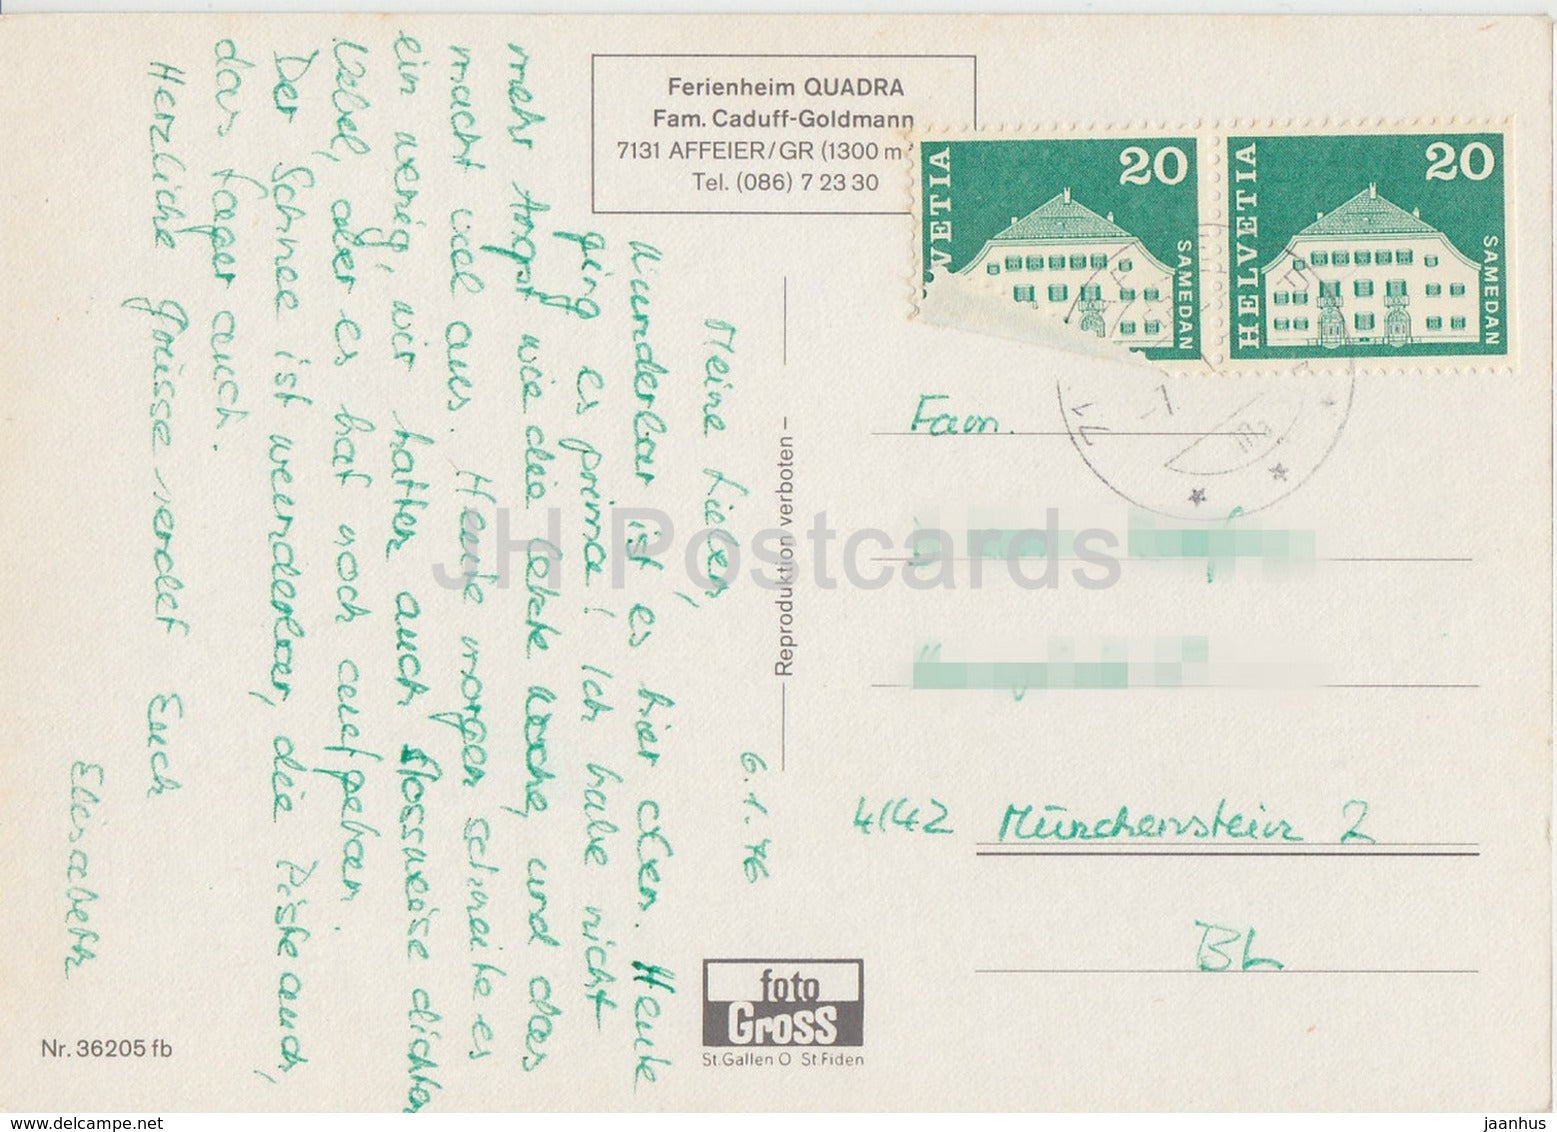 Ferienheim QUADRA
Fam. Caduff-Goldmann
7131 AFFEIER/GR (1300 m
Tel. (086) 7 23 30
VETIA
20
SAMEDAN
HELVETIA
20
SAMEDAN
6.1.76
Meine Lieben,
Wunderbar ist es hier oben. Heute
ging es prima! Ich habe nicht
mehr Angst wie die letzte Woche, und das
macht viel aus. Heute morgen schneite es
ein wenig, wir hatten auch stossweise dichten
Nebel, aber es hat noch aufgetan.
Der Schnee ist wunderbar, die Piste auch,
das Lager auch.
Herzliche Grüsse sendet Euch
Elisabeth
Reproduktion verboten
Fam.
4142 Münchenstein 2
BL
foto
Gross
St.Gallen O St.Fiden
Nr. 36205 fb
JH Postcards
jaanhus